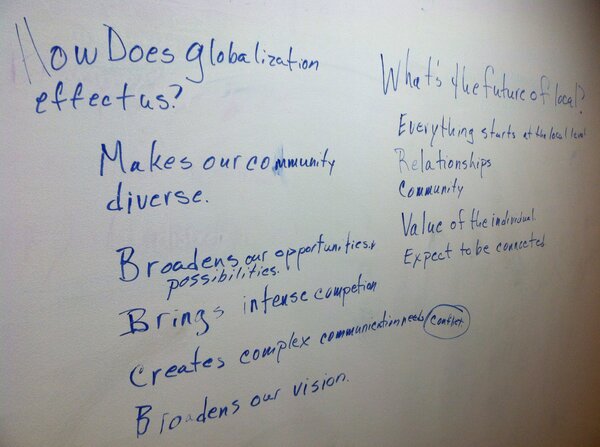 How Does globalization
effect us?
Makes our community
diverse.
Broadens our opportunities &
possibilities.
Brings intense competion
Creates complex communication needs/conflict
Broadens our vision.
What's the future of local?
Everything starts at the local level
Relationships
Community
Value of the individual
Expect to be connected